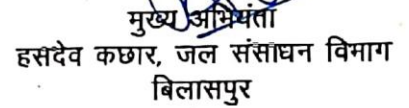 मुख्य अभियंता
हसदेव कछार, जल संसाधन विभाग
बिलासपुर